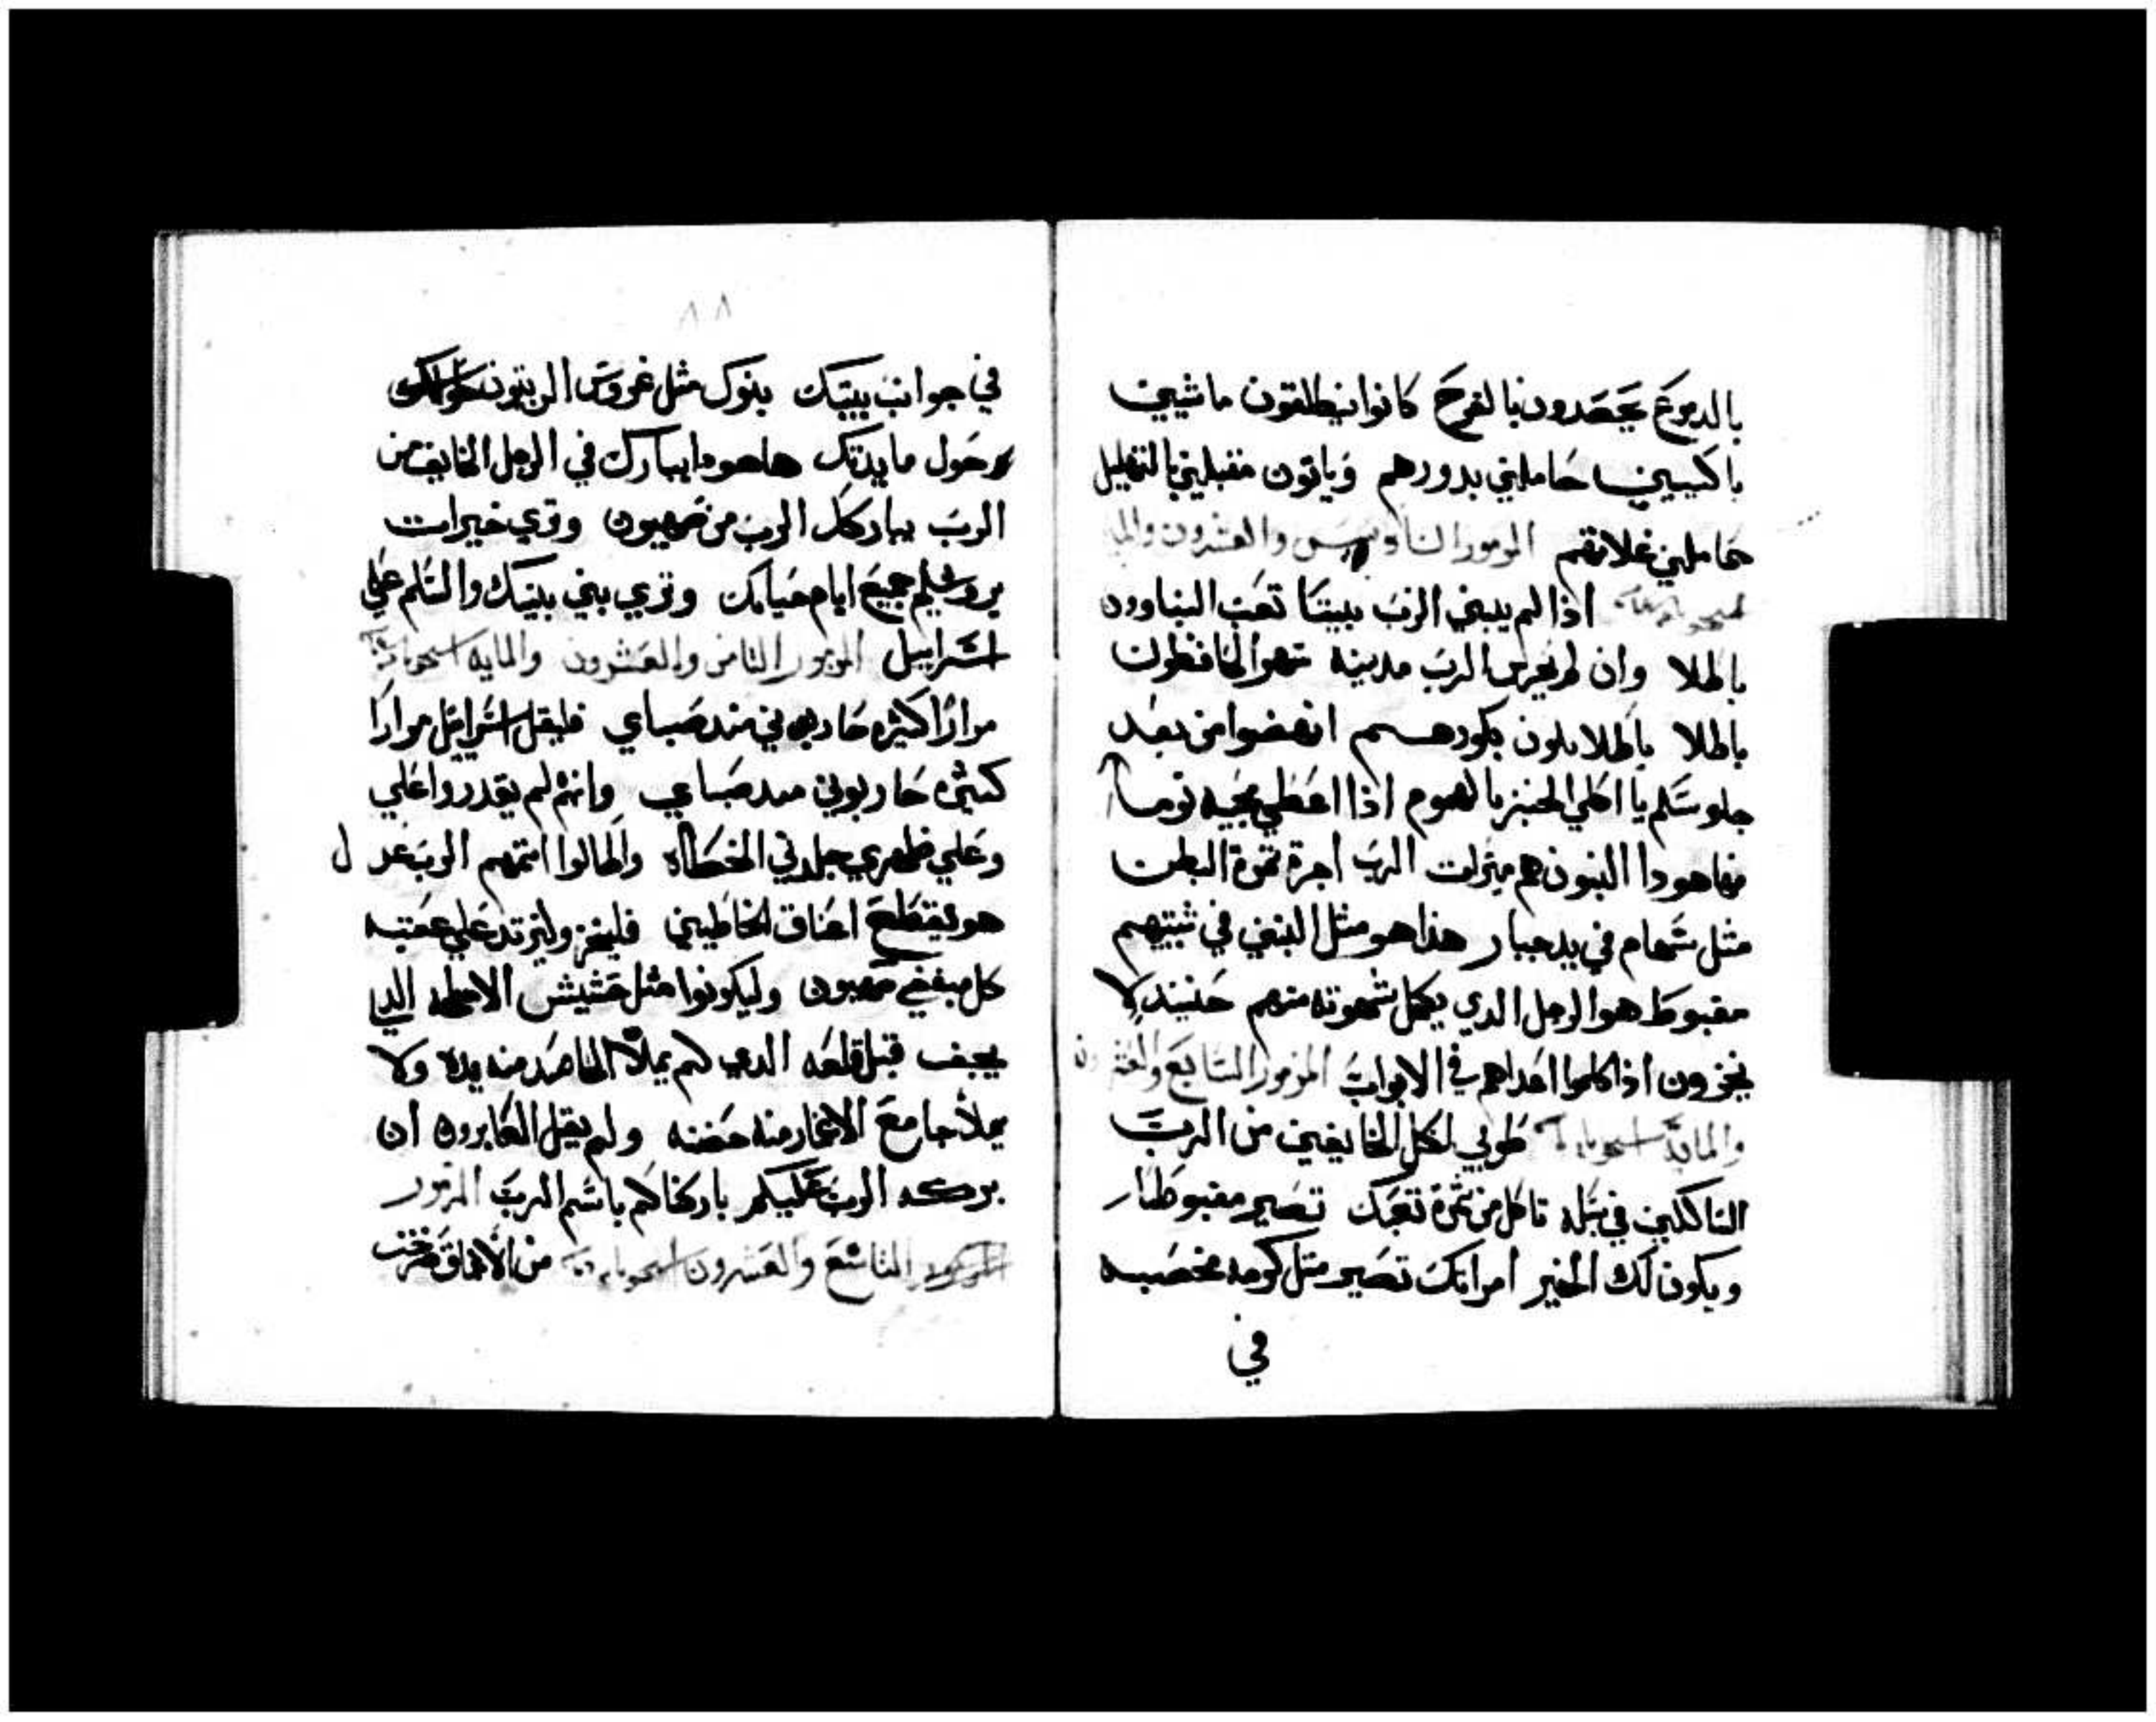 بالدموع يحصدون بالفرح كانوا ينطلقون ماشيين
باكيين حاملين بدورهم وياتون مقبلين بالتهليل
حاملين غلاتهم المزمور السادس والعشرون والما
اذا لم يبني الرب بيتا تعب البناوون
باطلا وان لم يحرس الرب مدينه سهر الحافظون
باطلا باطلا بكورهم انهضوا من بعد
جلوسكم يا اكلي الخبز بالهموم اذا اعطي محبيه نوما
فها هودا البنون هم ميراث الرب اجرة ثمرة البطن
مثل سهام في يد جبار هذا هو مثل البنين في شبيبتهم
مغبوط هو الرجل الدي يكمل شهوته منهم حينيد لا
يخزون اذا كلموا اعداهم في الابواب المزمور السابع والعشرون
والمايه طوبي لكل الخايفين من الرب
السالكين في سبله تاكل من ثمرة تعبك تصير مغبوطا
ويكون لك الخير امراتك تصير مثل كرمه مخصبه
في
٨٨
في جوانب بيتك بنوك مثل غروس الزيتون
حول مايدتك هاهودا يبارك في الرجل الخايف من
الرب يباركك الرب من صهيون وتري خيرات
يروشليم جميع ايام حياتك وتري بني بنيك والسلم علي
اسراييل المزمور الثامن والعشرون والمايه
مرارا كثيره حاربوني مند صباي فليقل اسراييل مرارا
كثيره حاربوني مند صباي وانهم لم يقدروا علي
وعلي ظهري جلدني الخطاه واطالوا اتمهم الرب عدل
هو يقطع اعناق الخاطيين فليخز وليرتد علي عقبه
كل مبغضي صهيون وليكونوا مثل حشيش الاسطحه الدي
يجف قبل قلعه الدي لم يملا الحاصد منه يده ولا
يملا جامع الاغمار منه حضنه ولم يقل العابرون ان
بركه الرب عليكم باركناكم باسم الرب المزمور
التاسع والعشرون من الاعماق صرخت